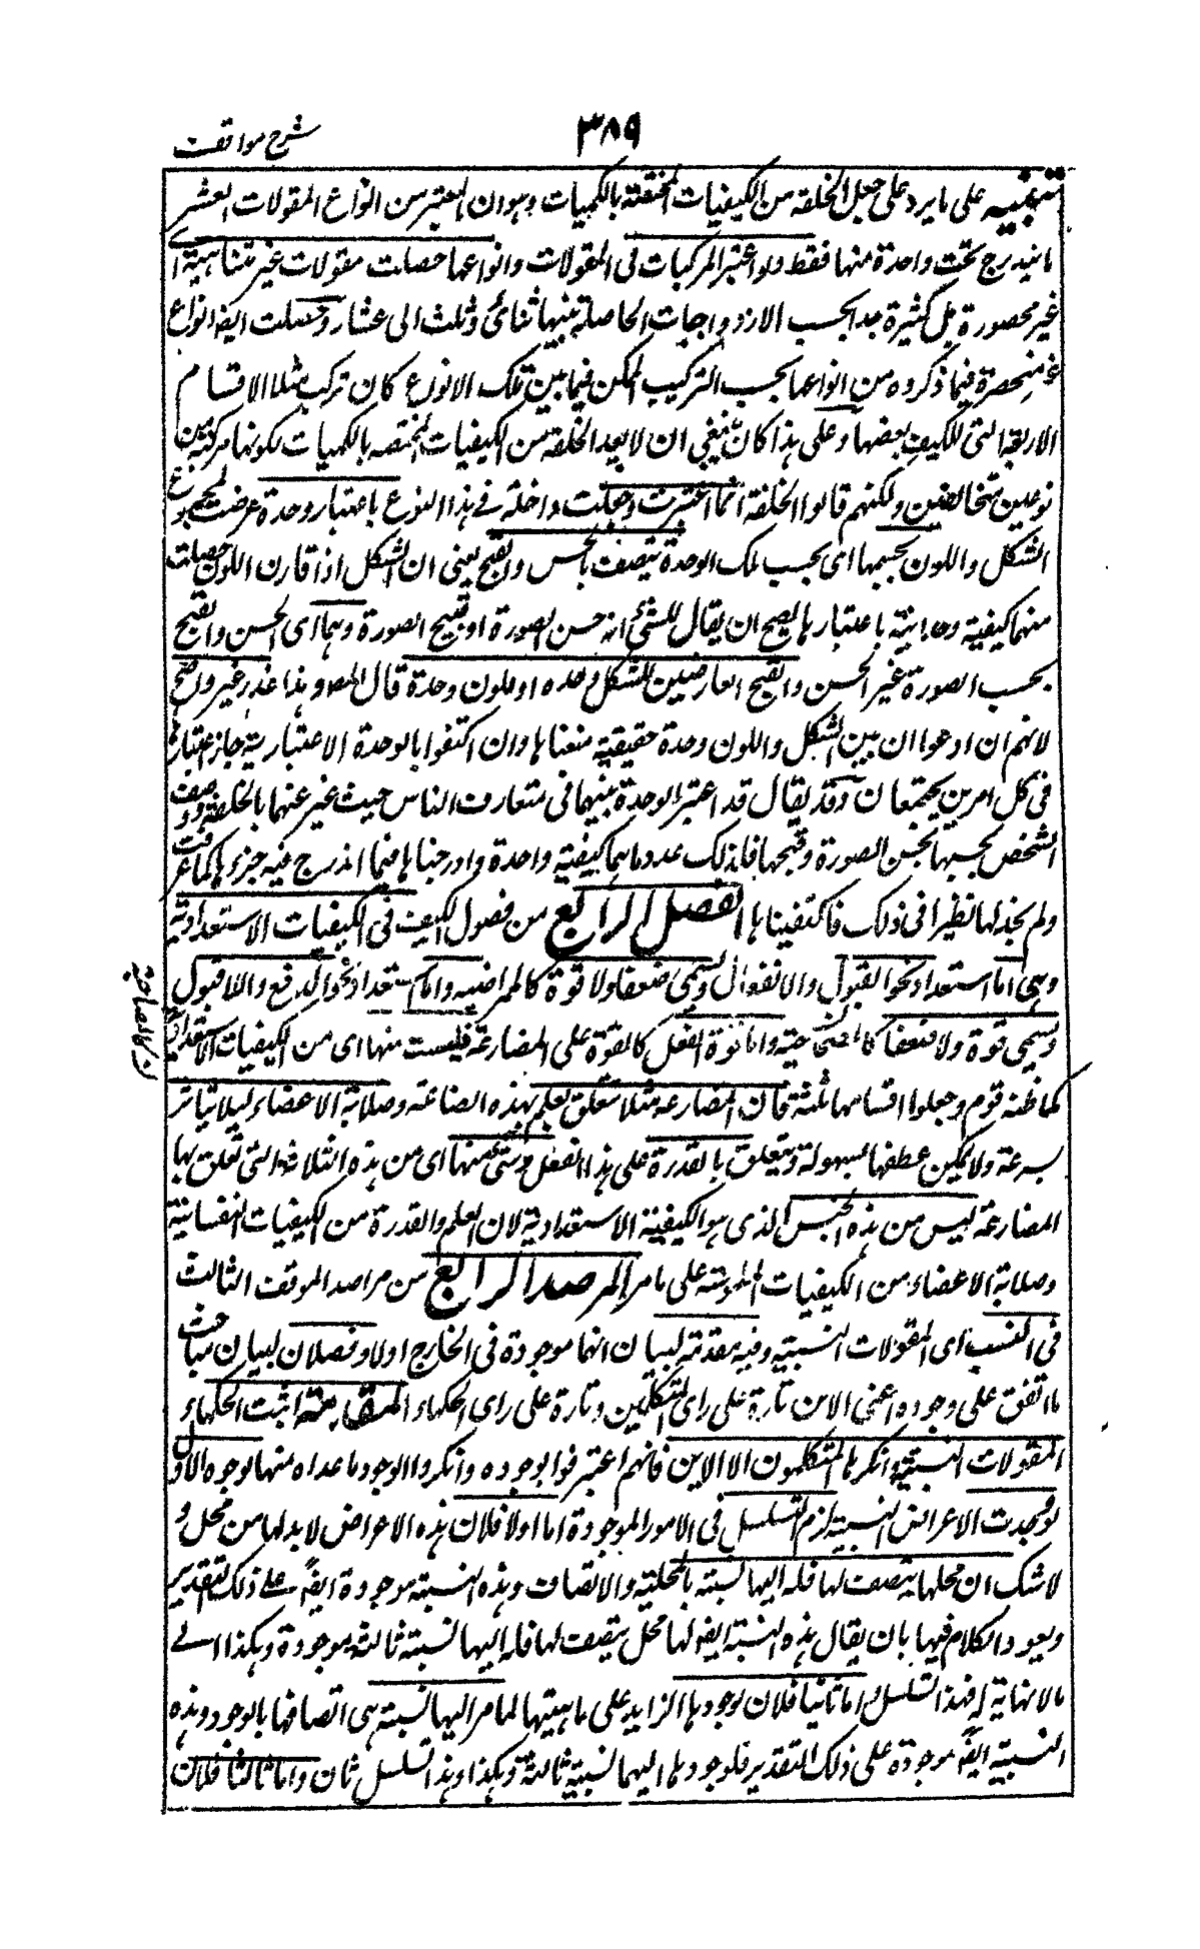 شرح مواقف
٣٨٩
تنبيه على ما يرد على جعل الخلقة من الكيفيات المختصة بالكميات وهو ان المعتبر من انواع المقولات العشر
ما يندرج تحت واحدة منها فقط ولو اعتبر المركبات فى المقولات وانواعها حصلت مقولات غير متناهية اى
غير محصورة بل كثيرة جدا بحسب الازدواجات الحاصلة بينها ثنائى وثلث الى عشار وحصلت ايضا انواع
غير منحصرة فيما ذكروه من انواعها بحسب التركيب الممكن فيما بين تلك الانواع كان تركب مثلا الاقسام
الاربعة التى للكيف بعضها وعلى هذا كان ينبغى ان لا يعد الخلقة من الكيفيات المختصة بالكميات لكونها مركبة من
نوعين متخالفين ولكنهم قالوا الخلقة انما اعتبرت وجعلت داخلة فى هذا النوع باعتبار وحدة عرضت لمجموع
الشكل واللون بحسبها اى بحسب تلك الوحدة يتصف بالحسن والقبح يعنى ان الشكل اذا قارن اللون حصلت
منهما كيفية وحدانية باعتبارها يصح ان يقال للشئ انه حسن الصورة او قبيح الصورة وهما اى الحسن والقبح
بحسب الصورة غير الحسن والقبح العارضين للشكل وحده او للون وحدة قال المصـ وهذا عذر غير واضح
لانهم ان ادعوا ان بين الشكل واللون وحدة حقيقية منعناها وان اكتفوا بالوحدة الاعتبارية جاز اعتبارها
فى كل امرين يجتمعان وقد يقال قد اعتبر الوحدة بينهما فى متعارف الناس حيث عبر عنهما بالخلقة ووصف
الشخص بحسبها بحسن الصورة وقبحها فلذلك عددناهما كيفية واحدة وادرجناها فيما اندرج فيه جزءها كما عرفت
ولم نجد لها نظيرا فى ذلك فاكتفينا بها الفصل الرابع من فصول الكيف فى الكيفيات الاستعدادية
وهى اما استعداد نحو القبول والانفعال ويسمى ضعفا ولا قوة كالممراضية واما استعداد نحو الدفع واللا قبول
ويسمى قوة ولا ضعفا كالمصحاحية واما قوة الفعل كالقوة على المصارعة فليست منها اى من الكيفيات الاستعدادية
كما ظنه قوم وجعلوا اقسامها ثلثة فان المصارعة مثلا تتعلق بعلم بهذه الصناعة وصلابة الاعضاء لئلا يتاثر
بسرعة ولا يمكن عطفها بسهولة وتتعلق بالقدرة على هذا الفعل وشئ منها اى من هذه الثلاثة التى تعلق بها
المصارعة ليس من هذه الجنس الذى هو الكيفية الاستعدادية لان العلم والقدرة من الكيفيات النفسانية
وصلابة الاعضاء من الكيفيات الملموسة على ما مر المرصد الرابع من مراصد الموقف الثالث
فى النسب اى المقولات النسبية وفيه مقدمة لبيان انها موجودة فى الخارج اولا وفصلان لبيان مباحث
ما اتفق على وجوده اعنى الاين تارة على راى المتكلمين وتارة على راى الحكماء المقدمة اثبت الحكماء
المقولات النسبية وانكرها المتكلمون الا الاين فانهم اعترفوا بوجوده وانكروا الوجود ما عداه منها لوجوه الاول
لو وجدت الاعراض النسبية لزم التسلسل فى الامور الموجودة اما اولا فلان هذه الاعراض لا بد لها من محل و
لا شك ان محلها يتصف لها فله اليها نسبة بالمحلية والاتصاف وهذه النسبة موجودة ايضا على ذلك التقدير
ويعود الكلام فيها بان يقال هذه النسبة ايضا لها محل يتصف لها فله اليها نسبة ثالثة موجودة وهكذا الى
مالا نهاية له فهذا التسلسل واما ثانيا فلان لوجودها الزايد على ماهيتها لما مر اليها نسبة هى اتصافها بالوجود وهذه
النسبة ايضا موجودة على ذلك التقدير فلوجودها اليها نسبة ثالثة وهكذا وهذا تسلسل ثان واما ثالثا فلان